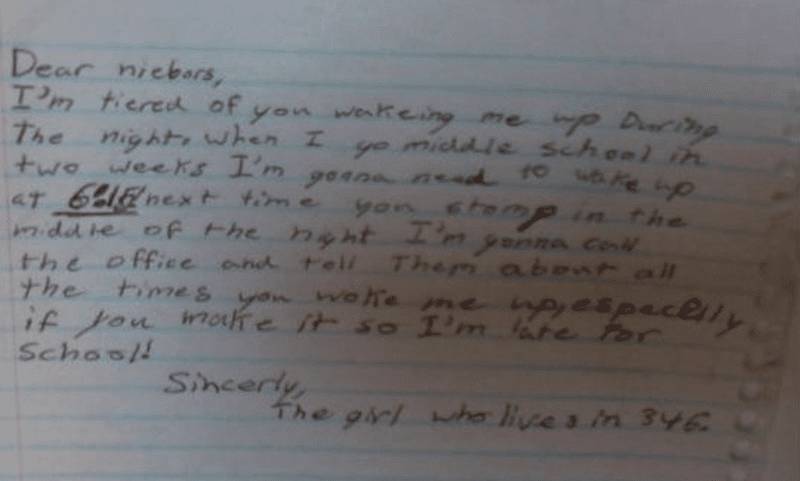 Dear niebors,
I'm tiered of you wakeing me up During
The night, when I go middle school in
two weeks I'm gonna need to wake up
at 6:15! next time you stomp in the
middle of the night I'm gonna call
the office and tell Them about all
the times you woke me up, especially
if you make it so I'm late for
School!
Sincerly,
The girl who lives in 346.